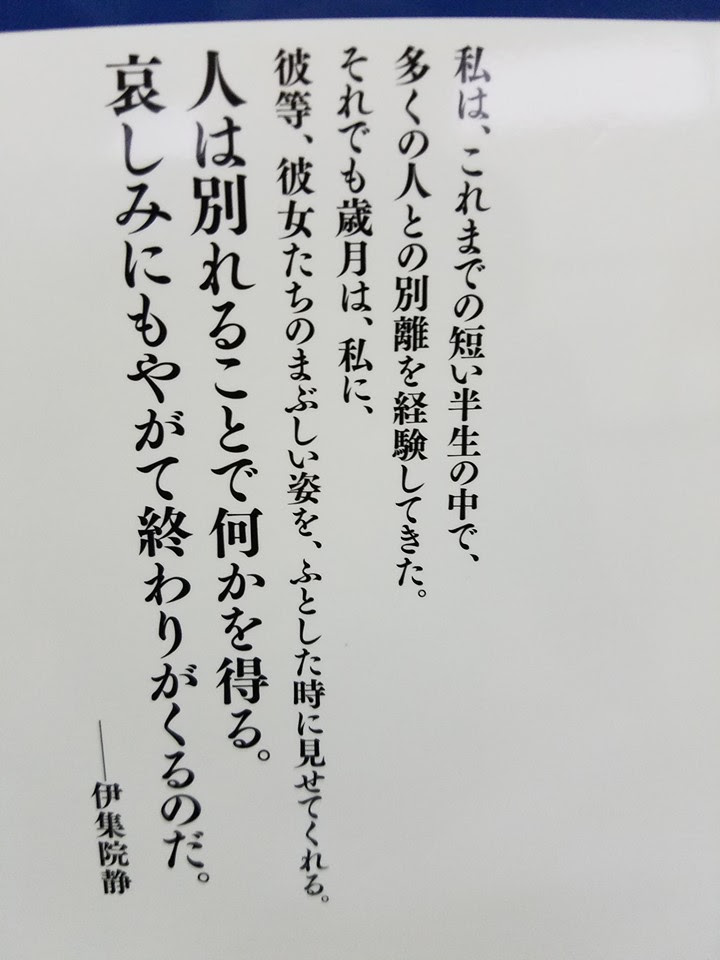 私は、これまでの短い半生の中で、
多くの人との別離を経験してきた。
それでも歳月は、私に、
彼等、彼女たちのまぶしい姿を、ふとした時に見せてくれる。
人は別れることで何かを得る。
哀しみにもやがて終わりがくるのだ。
——伊集院静